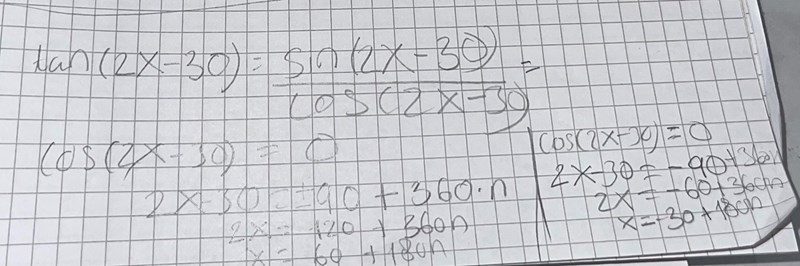 tan(2x-30) = sin(2x-30) / cos(2x-30) =
cos(2x-30) = 0
2x-30 = ±90 + 360·n
2x = 120 + 360n
x = 60 + 180n
cos(2x-30) = 0
2x-30 = -90+360n
2x = -60+360n
x = -30+180n